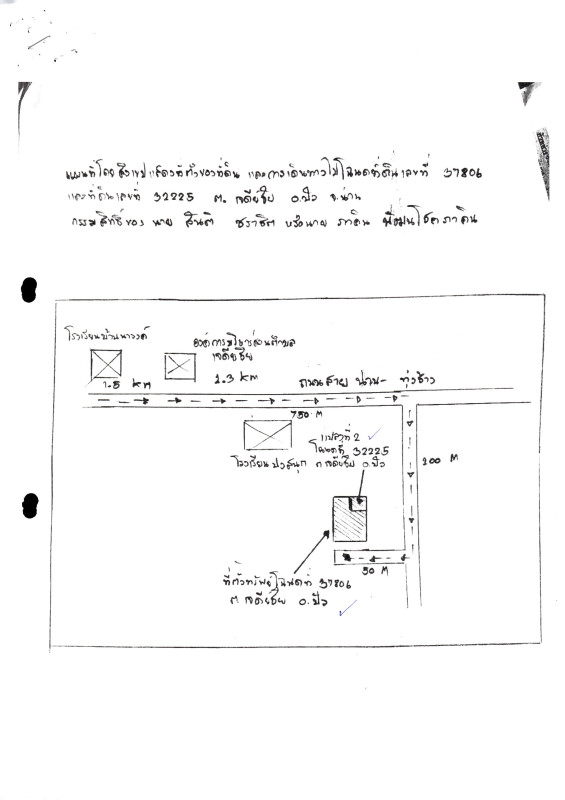 แผนที่โดยสังเขปแสดงที่ตั้งของที่ดิน และการเดินทางไปโฉนดที่ดินเลขที่ 37806
และที่ดินเลขที่ 32225 ต. เจดีย์ชัย อ.ปัว จ.น่าน
กรรมสิทธิ์ของ นาย สันติ หรือนาย ภาคิน
โรงเรียนบ้านนาวงค์
1.5 km
องค์การบริหารส่วนตำบล
เจดีย์ชัย
1.3 km
ถนนสาย น่าน - ทุ่งช้าง
750 M
โรงเรียนปงสนุก
แปลงที่ 2
โฉนดที่ 32225
ต.เจดีย์ชัย อ.ปัว
200 M
50 M
ที่ตั้งทรัพย์โฉนดที่ 37806
ต.เจดีย์ชัย อ.ปัว